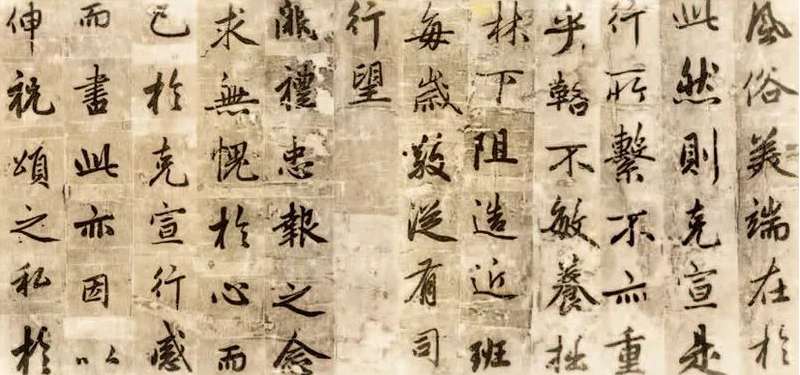 風俗美端在於
此然則克宣是
行所繫不亦重
乎輅不敏養拙
林下阻造近班
每歲敬從有司
行望
闕禮忠報之念
求無愧於心而
已於克宣行感
而書此亦因以
伸祝頌之私於